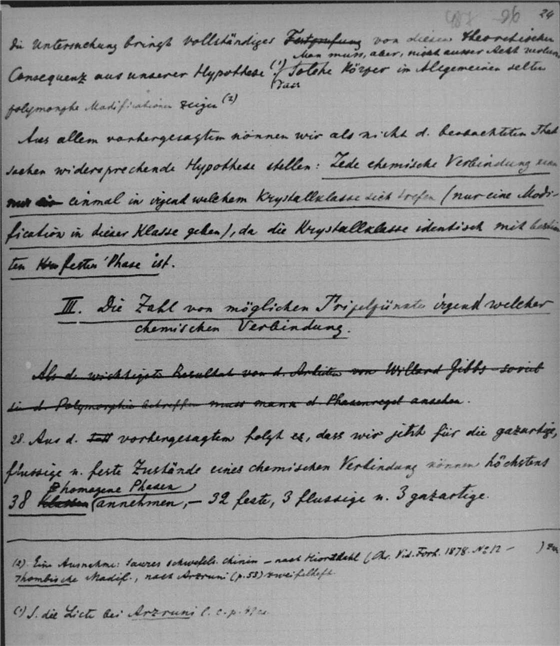 487 96 24
die Untersuchung bringt vollständiges von diesen theoretischen
Man muss, aber, nicht ausser Acht
Consequenz aus unserer Hypothese (1) Solche Körper in Allgemeinen selten
dass
polymorphe Modificationen zeigen (2)
Aus allem vorhergesagten können wir als nicht d. beobachteten That
sachen widersprechende Hypothese stellen: Jede chemische Verbindung kann
nur ein einmal in irgend welchem Krystallklasse sich trefen (nur eine Modi-
fication in dieser Klasse geben), da die Krystallklasse identisch mit bestim
ten festen Phase ist.
III. Die Zahl von möglichen Tripelpünkte irgend welcher
chemischen Verbindung.
Als d. wichtigste Resultat von d. Arbeiten von Willard Gibbs soviel
sie d. Polymorphie betreffen muss mann d Phasenregel ansehen.
28. Aus d. vorhergesagtem folgt es, dass wir jetzt für die gazartige,
flussige u. feste Zustände eines chemischen Verbindung können höchstens
homogene Phasen
38 Klassen annehmen, – 32 feste, 3 flussige u. 3 gazartige.
(2) Eine Ausnehme: saures schwefels. Chinin – nach Hiortdahl (Chr. Vid. Forh. 1878. No 12 –
rhombische Modif., nach Arzruni (p. 53) zweifelhaft.
(1) S. die Liste bei Arzruni l. c. p.